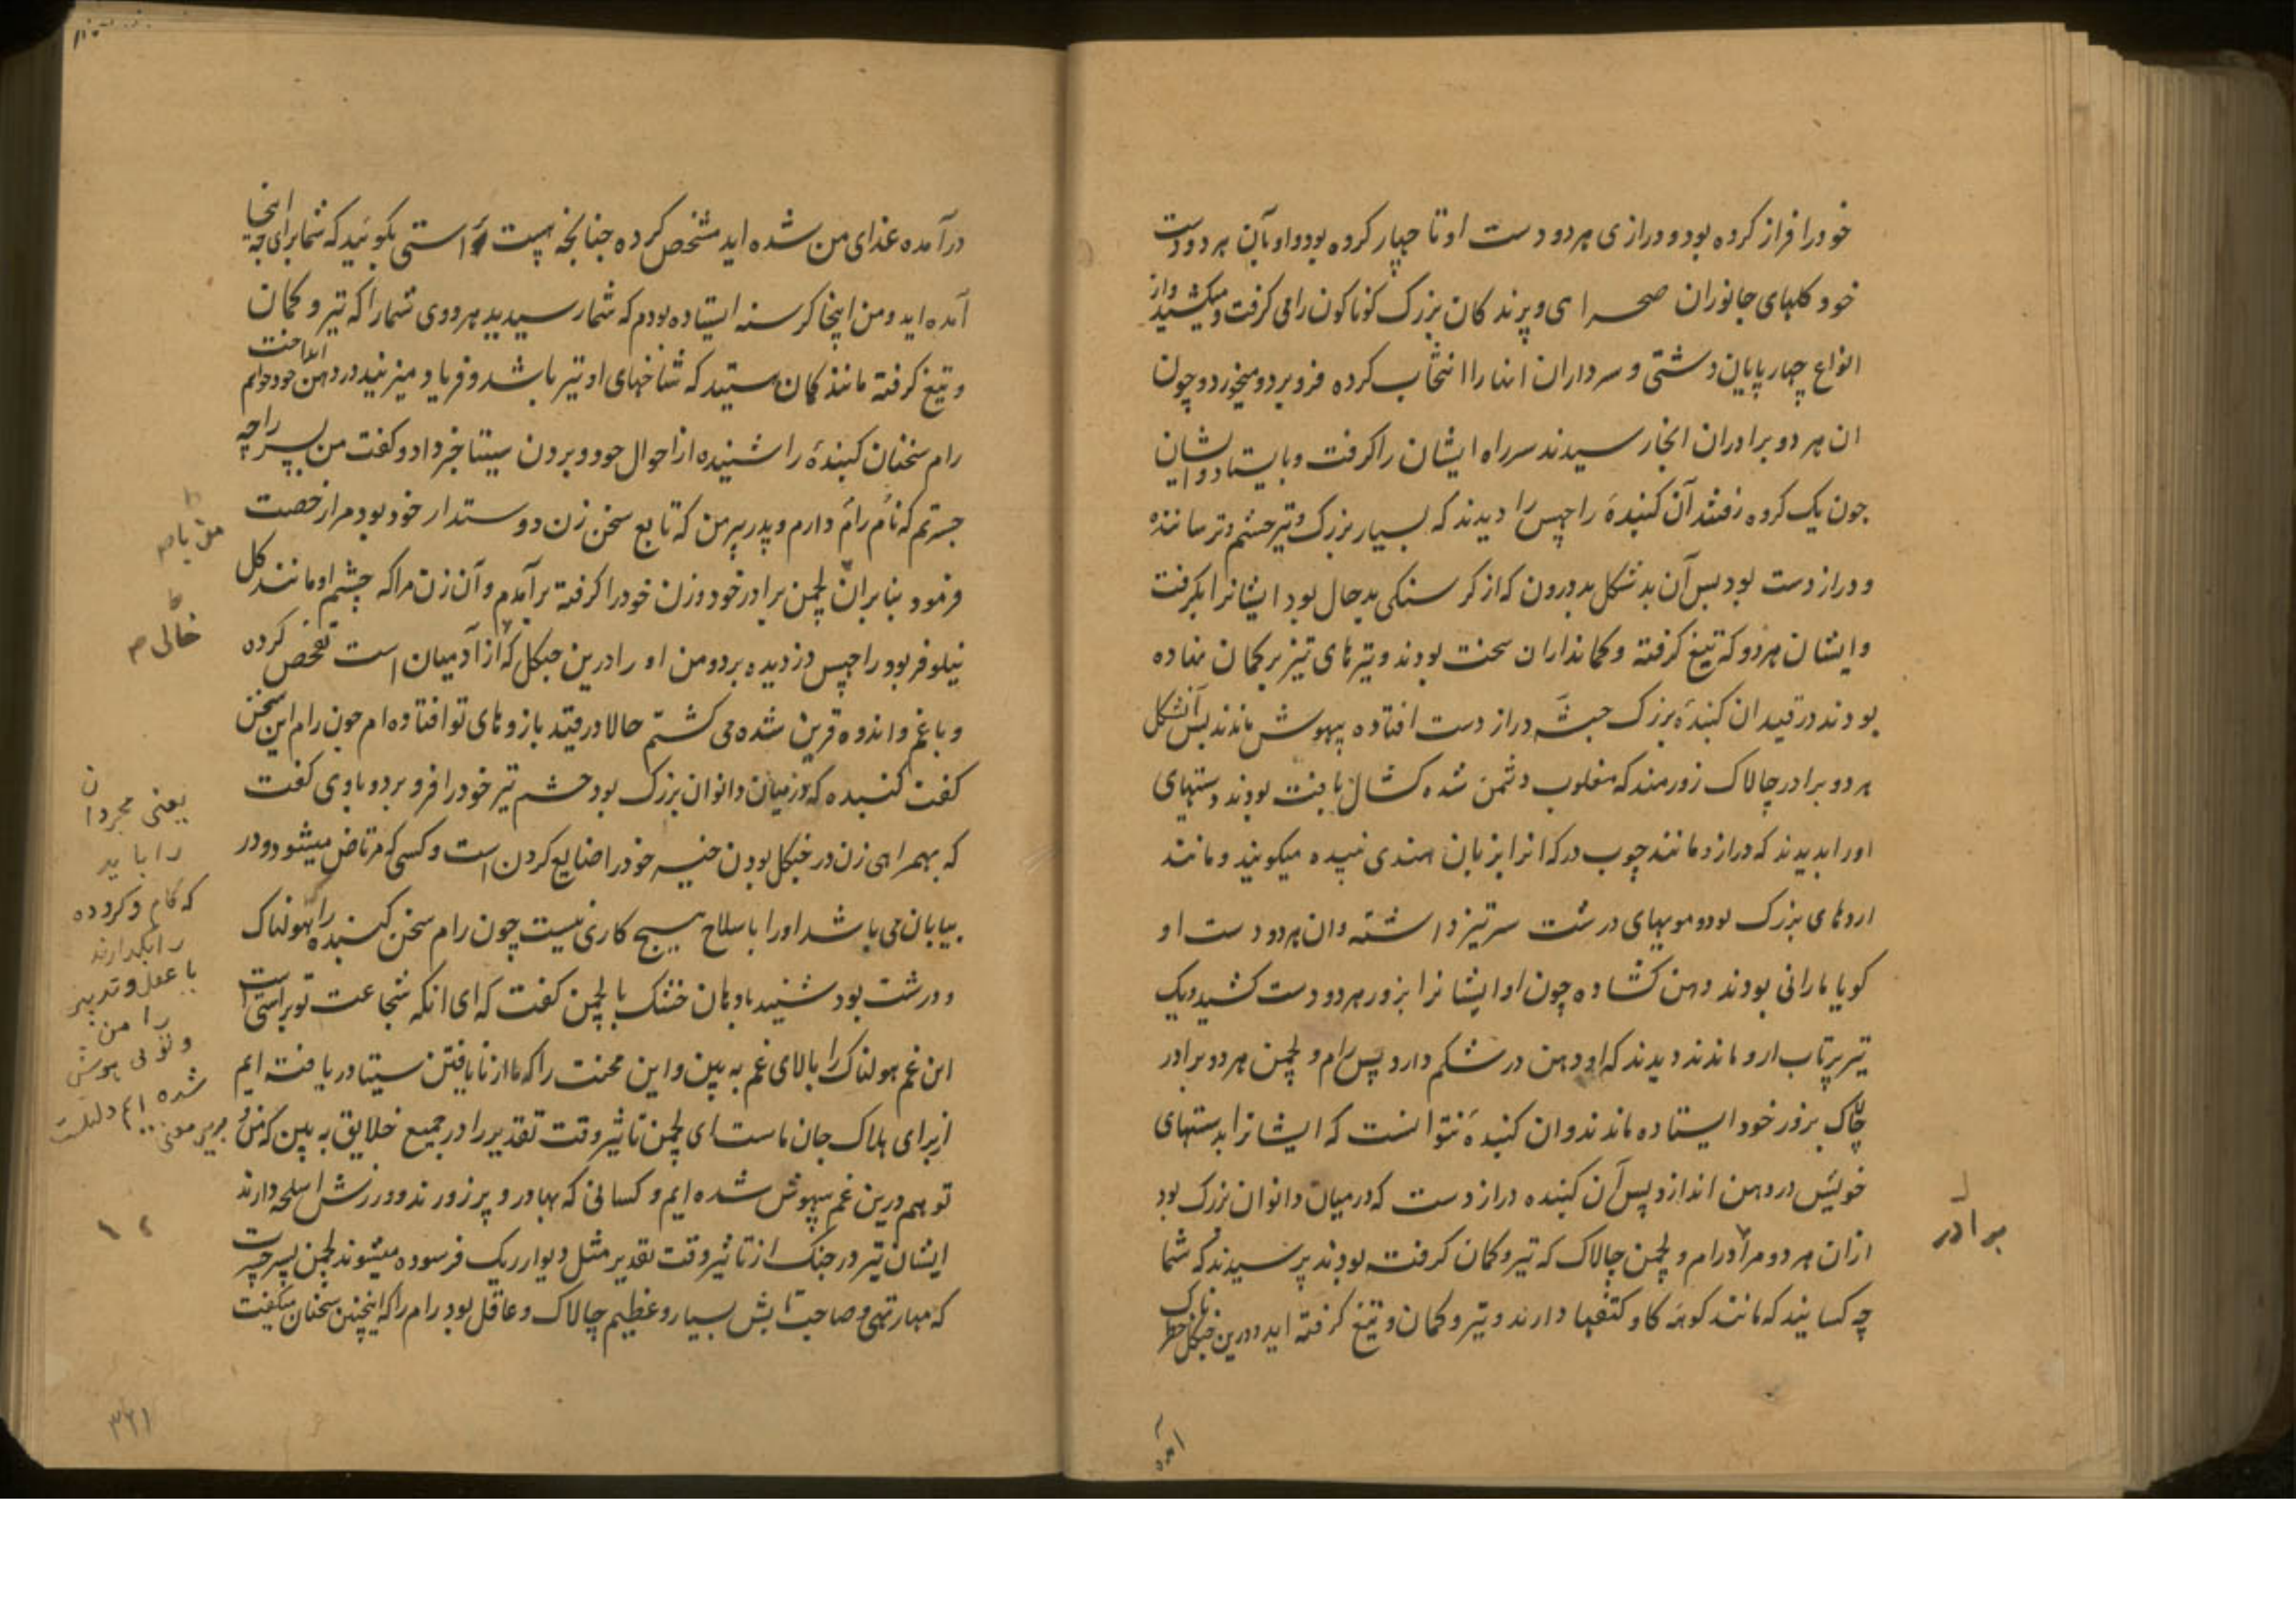 خودرا فراز کرده بود و درازی هر دو دست او تا چهار کروه بود و او بآن هر دو دست
خود کلهای جانوران صحرا ی و پرند کان بزرک کوناکون را می کرفت و میکشید و از
انواع چهار پایان دشتی و سرداران انها را انتخاب کرده فرو بردو میخورد و چون
ان هر دو برادران انجا رسیدند سر راه ایشان را کرفت و بایستاد و ایشان
چون یک کروه رفتند آن کبندهٔ راچهس را دیدند که بسیار بزرک و تیز چشم و ترسا ننده
و دراز دست بود پس آن بد شکل بد درون که از کر سنکی بد حال بود ایشانرا بکرفت
و ایشان هر دو که تیغ کرفته و کمانداران سخت بودند و تیرهای تیز بر کمان نهاده
بودند در قید ان کبندهٔ بزرک جثه دراز دست افتاده بیهوش ماندند پس آنشکل
هر دو برادر چالاک زورمند که مغلوب دشمن شده کشال یافت بودند دستهای
اورا بدیدند که دراز و مانند چوب در که انرا بزبان هندی میکویند و مانند
اژدهای بزرک بود و مویهای درشت سر تیز داشته و ان هر دو دست او
کویا مارانی بودند دهن کشاده چون او ایشانرا بزور هر دو دست کشید و یک
تیر پرتاب ارو ماندند دیدند که او دهن در شکم دارد پس رام و لچمن هر دو برادر
چالاک بزور خود ایستاده ماندند و ان کبندهٔ نتوانست که ایشانرا بدستهای
خویش در دهن اندازد پس آن کبنده دراز دست که درمیان دانوان بزرک بود
ازان هر دو مرادر رام و لچمن چالاک که تیر و کمان کرفته بودند پرسیدند که شما
چه کسانید که مانند کوهه کاو کتفها دارند و تیر و کمان و تیغ کرفته اید و درین جنکل خطر
ناک
برادر
درآمده غذای من شده اید مشخص کرده چنانچه هست راستی بکوئید که شما برای چه
اینجا
آمده اید و من اینجا کرسنه ایستاده بودم که شما رسیدید هر دوی شما را که تیر و کمان
و تیغ کرفته مانند کمان ستید که شاخهای او تیر باشد و فریاد میزنید در دهن خود خواهم
انداخت
رام سخنان کبندهٔ را شنیده از احوال خود و بردن سیتا خبر داد و کفت من پسر راجه
جسرتم که نام رام دارم و پدر پیر من که تابع سخن زن دوستدار خود بود مرا رخصت
فرمود بنا بران لچمن برادر خود و زن خود را کرفته برآمدم و آن زن مرا که چشم او مانند کل
نیلوفر بود راچهس دزدیده برد و من او را درین جنکل که از آدمیان است تفحص کرده
و با غم و اندوه قرین شده می کشتم حالا در قید بازوهای تو افتاده ام چون رام این سخن
کفت کبنده که درمیان دانوان بزرک بود خشم تیز خود را فرو برد و باوی کفت
که بهمراهی زن در جنکل بودن خود را ضایع کردن است و کسی که مرتاض میشود و در
بیابان می باشد اورا با سلاح هیچ کاری نیست چون رام سخن کبنده را که هولناک
و درشت بود شنید با دهان خشک با لچمن کفت که ای انکه شجاعت تو براستی است
این غم هولناک را بالای غم به بین و این محنت را که ما از نا یافتن سیتا دریافته ایم
از برای هلاک جان ماست ای لچمن تاثیر وقت تقدیر را در جمیع خلایق به بین که من و
تو هم درین غم بیهوش شده ایم و کسانی که بهادر و پر زورند و ورزش اسلحه دارند
ایشان نیز در جنک از تاثیر وقت تقدیر مثل دیوار ریک فرسوده میشوند لچمن پسر جسرت
که مهارتهی و صاحب تابش بسیار و عظیم چالاک و عاقل بود رام را که اینچنین سخنان میکفت
خالی
یعنی مجردان
را باید
که کام و کروده
را بکذارند
با عقل و تدبیر
را من
و تو بی هوش
شده ایم
۳۶۱